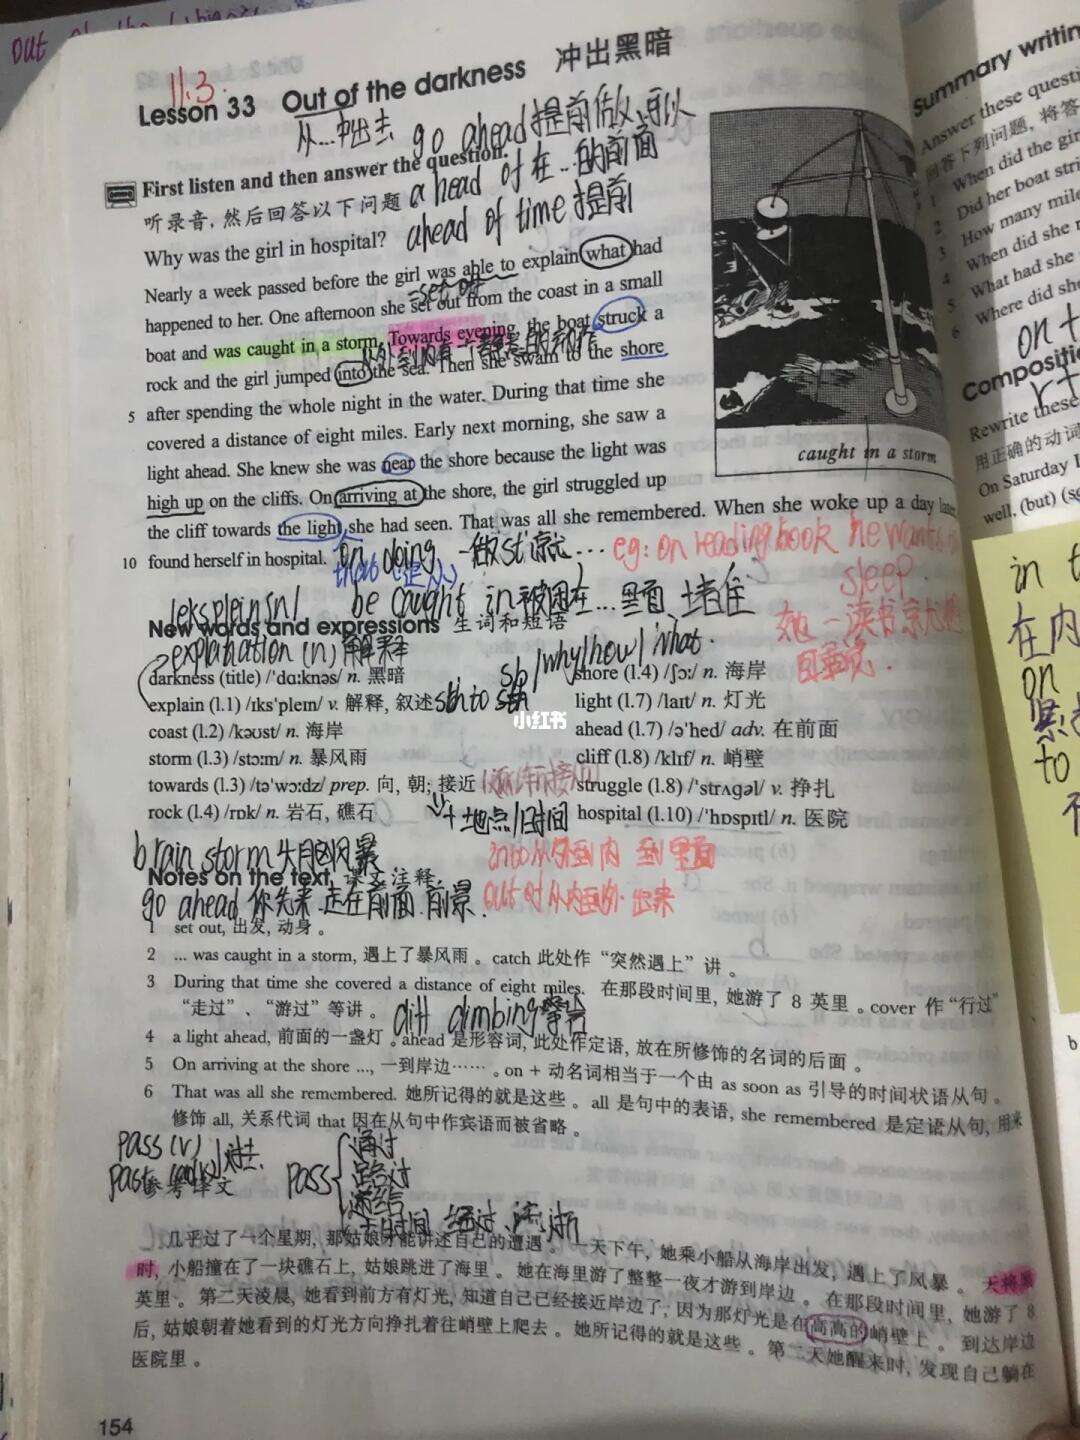 11.3.
Lesson 33 Out of the darkness 冲出黑暗
从...冲出去 go ahead 提前做,可以
First listen and then answer the question.
ahead of 在...的前面
听录音,然后回答以下问题
ahead of time 提前
Why was the girl in hospital?
Nearly a week passed before the girl was able to explain what had
=set off
happened to her. One afternoon she set out from the coast in a small
boat and was caught in a storm. Towards evening, the boat struck a
rock and the girl jumped into the sea. Then she swam to the shore
5 after spending the whole night in the water. During that time she
covered a distance of eight miles. Early next morning, she saw a
light ahead. She knew she was near the shore because the light was
high up on the cliffs. On arriving at the shore, the girl struggled up
the cliff towards the light she had seen. That was all she remembered. When she woke up a day
10 found herself in hospital.
caught in a storm
on doing 一做st就...
eg: on reading book he wants to
sleep.
that
be caught in 被困在...里面 堵住
New words and expressions 生词和短语
explanation (n) 解释
sb/why/how/what.
darkness (title) /'dɑ:knəs/ n. 黑暗
explain (l.1) /ɪks'pleɪn/ v. 解释, 叙述 sth to sth
coast (l.2) /kəʊst/ n. 海岸
storm (l.3) /stɔ:m/ n. 暴风雨
towards (l.3) /tə'wɔ:dz/ prep. 向, 朝; 接近
+ 地点/时间
rock (l.4) /rɒk/ n. 岩石, 礁石
shore (l.4) /ʃɔ:/ n. 海岸
light (l.7) /laɪt/ n. 灯光
ahead (l.7) /ə'hed/ adv. 在前面
cliff (l.8) /klɪf/ n. 峭壁
struggle (l.8) /'strʌgəl/ v. 挣扎
hospital (l.10) /'hɒspɪtl/ n. 医院
小红书
brain storm 头脑风暴
into 从外到内 到里面
Notes on the text 课文注释
go ahead 你先来 走在前面 前景.
out of 从内到外 出来
1 set out, 出发, 动身 。
2 ... was caught in a storm, 遇上了暴风雨 。catch 此处作“突然遇上”讲 。
3 During that time she covered a distance of eight miles. 在那段时间里, 她游了 8 英里 。cover 作“行过”
“走过”、“游过”等讲 。
cliff climbing 攀岩
4 a light ahead, 前面的一盏灯 。ahead 是形容词, 此处作定语, 放在所修饰的名词的后面 。
5 On arriving at the shore ..., 一到岸边…… 。on + 动名词相当于一个由 as soon as 引导的时间状语从句 。
6 That was all she remembered. 她所记得的就是这些 。all 是句中的表语, she remembered 是定语从句, 用来
修饰 all, 关系代词 that 因在从句中作宾语而被省略 。
pass (v)
past
过去.
参考译文
pass
通过
路过
递给
时间
几乎过了一个星期, 那姑娘才能讲述自己的遭遇 。一天下午, 她乘小船从海岸出发, 遇上了风暴 。天将黑
时, 小船撞在了一块礁石上, 姑娘跳进了海里 。她在海里游了整整一夜才游到岸边 。在那段时间里, 她游了 8
英里 。第二天凌晨, 她看到前方有灯光, 知道自己已经接近岸边了, 因为那灯光是在高高的峭壁上 。到达岸边
后, 姑娘朝着她看到的灯光方向挣扎着往峭壁上爬去 。她所记得的就是这些 。第二天她醒来时, 发现自己躺在
医院里 。
154
Summary writing
Answer these
回答下列问题, 将答
1 When did the girl
2 Did her boat
3 How many
4 When did she
5 What had she
6 Where did she
on +
Rewrite these
用正确的动词
On Saturday
well, (but)
在内
on
to